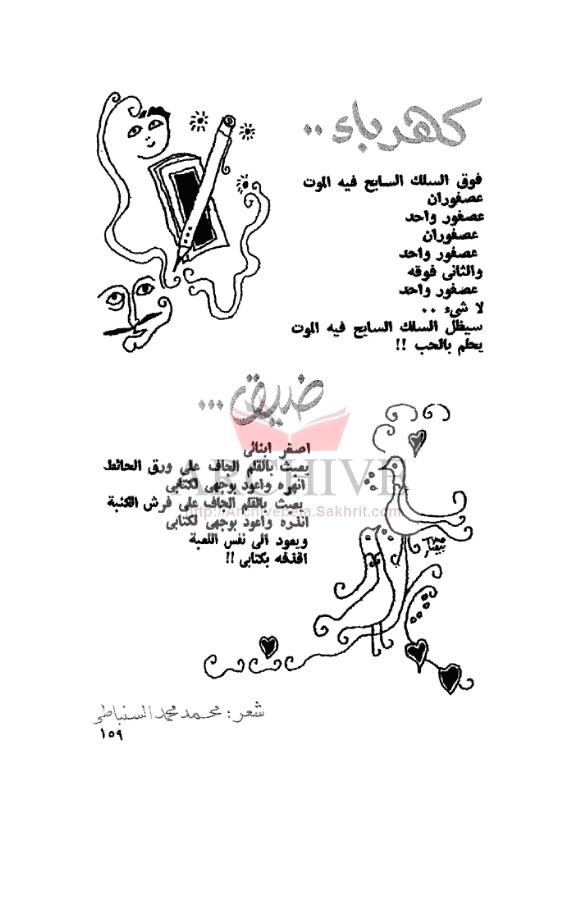 كهرباء ..
فوق السلك السابح فيه الموت
عصفوران
عصفور واحد
عصفوران
عصفور واحد
والثانى فوقه
عصفور واحد
لا شىء ..
سيظل السلك السابح فيه الموت
يحلم بالحب !!
ضيق ...
اصغر ابنائى
يعبث بالقلم الجاف على ورق الحائط
انهره واعود بوجهى لكتابى
يعبث بالقلم الجاف على فرش الكنبة
انذره واعود بوجهى لكتابى
ويعود الى نفس اللعبة
اقذفه بكتابى !!
ARCHIVE
http://Archivebeta.Sakhrit.com
شعر : محمد محمد السنباطى
١٥٩